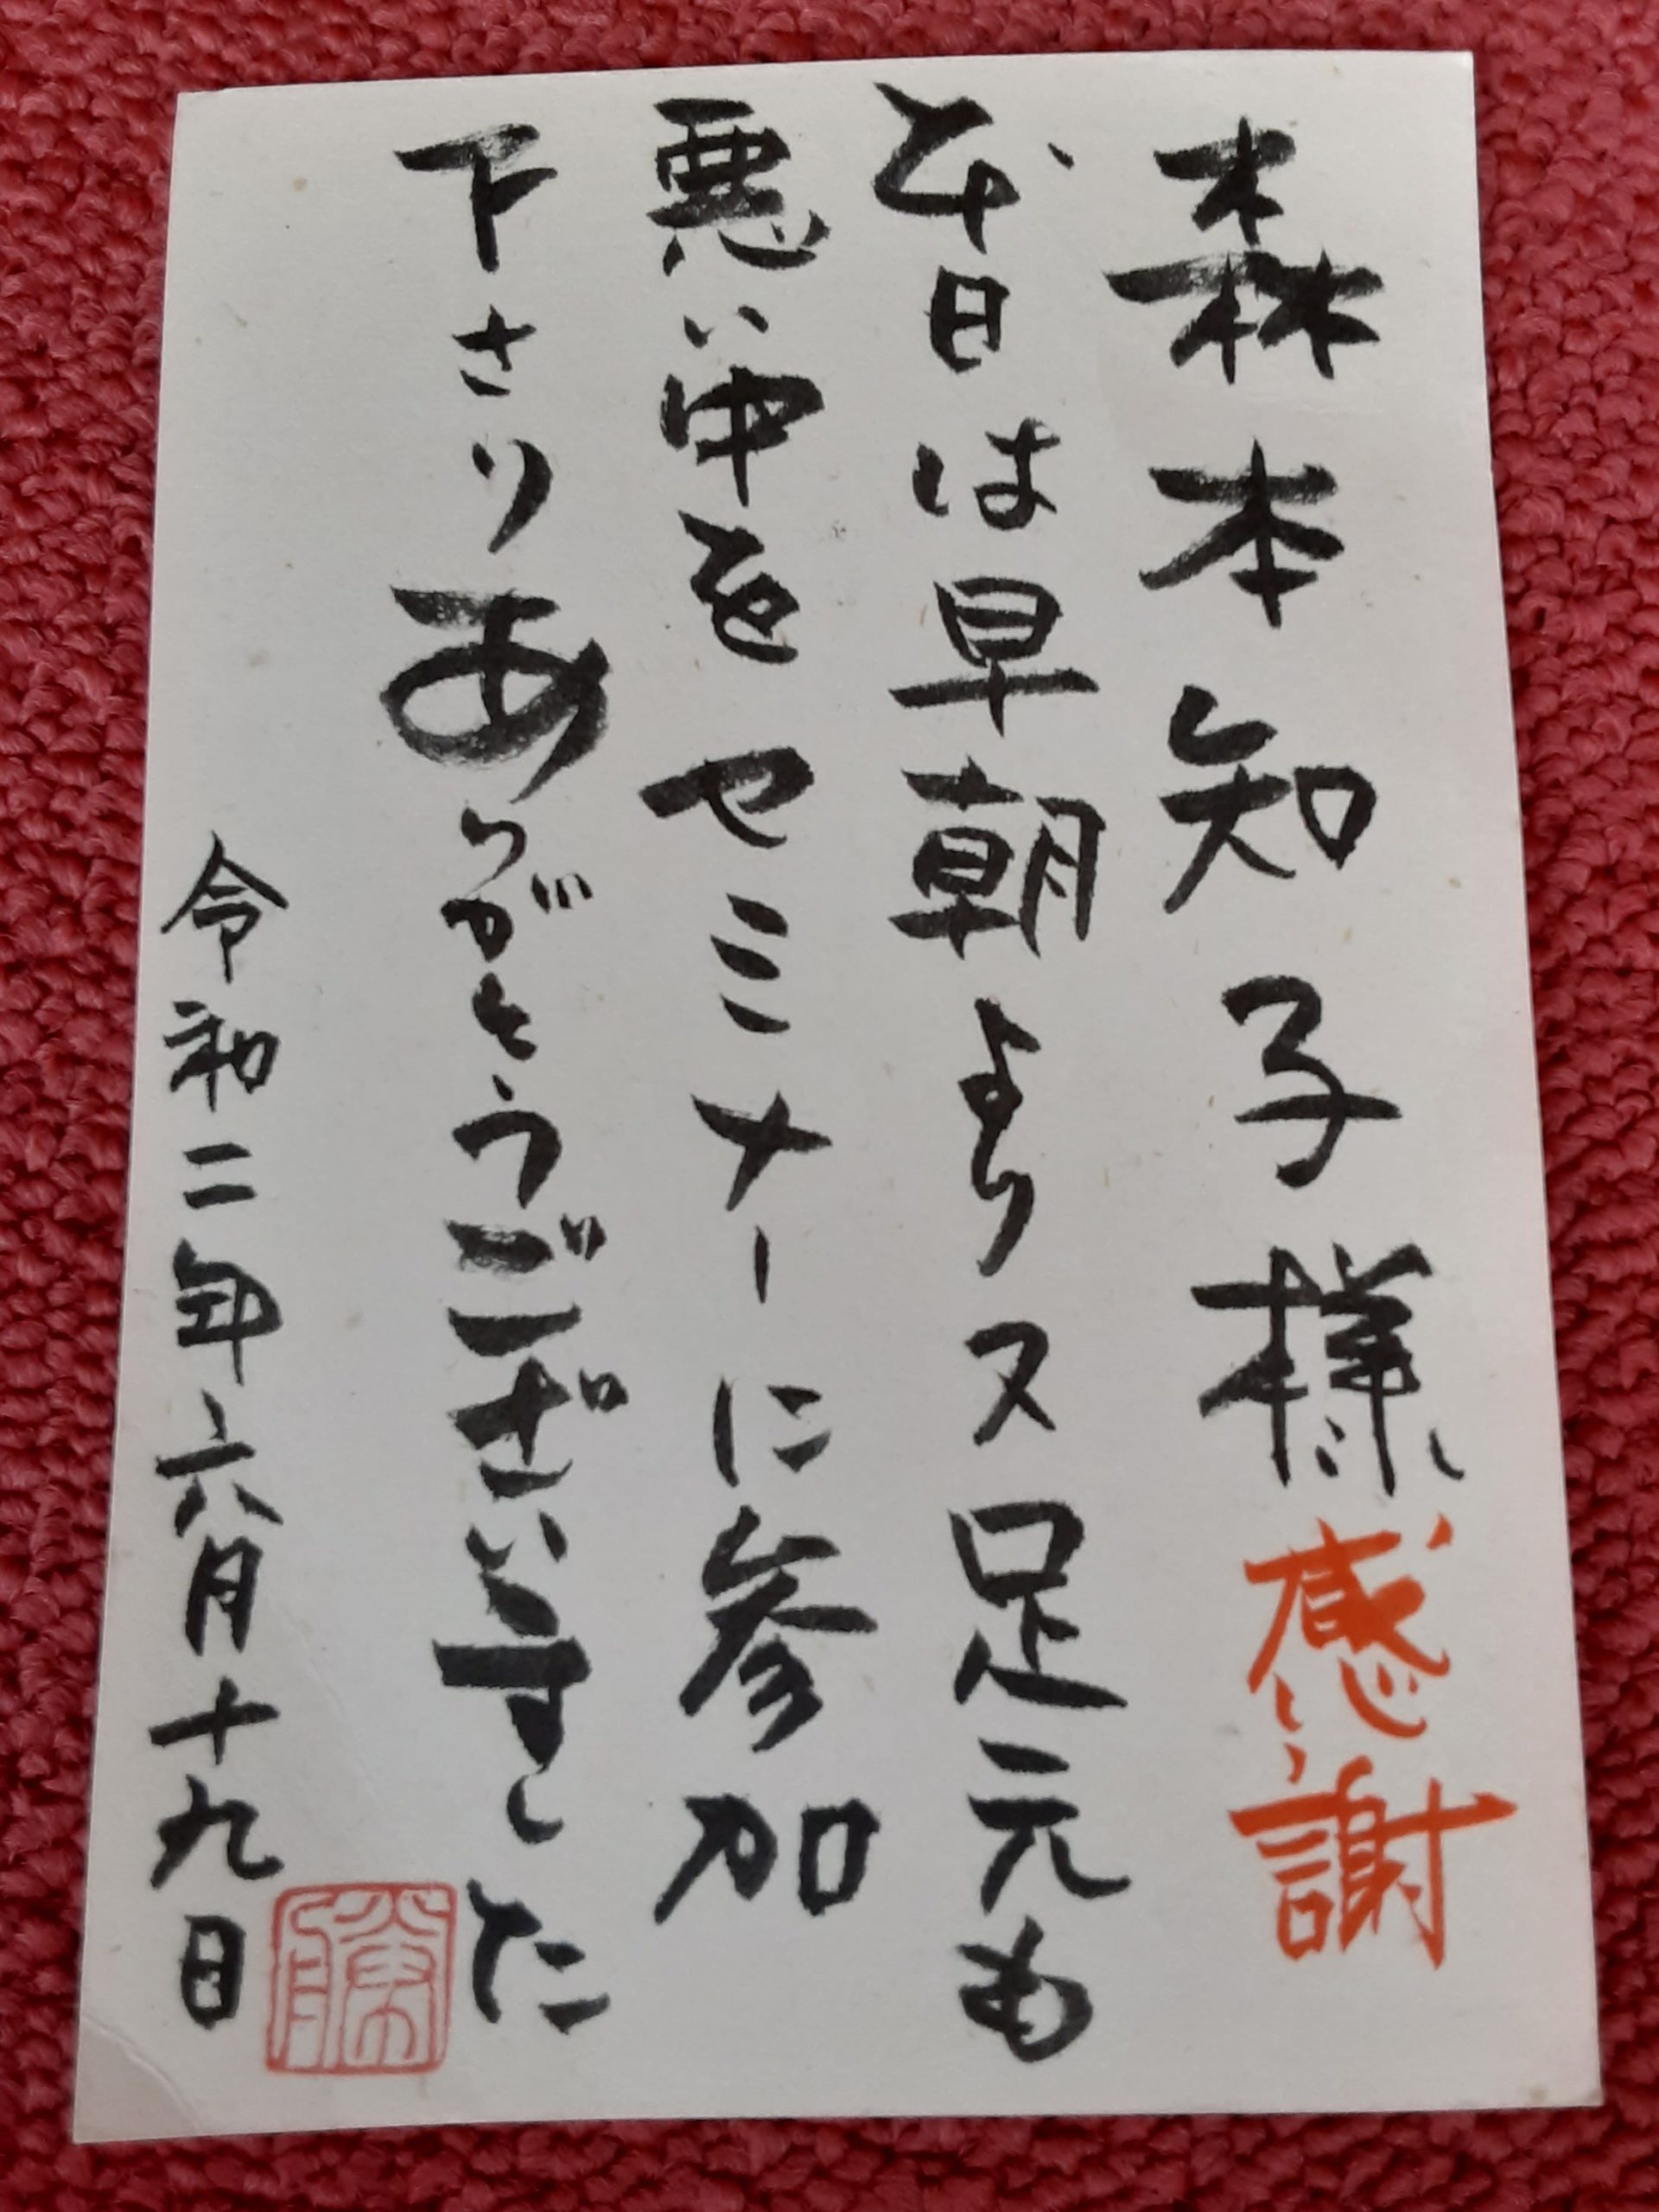 森本知子様 感謝
本日は早朝より又足元も
悪い中をセミナーに参加
下さりありがとうございました
令和二年六月十九日
勝